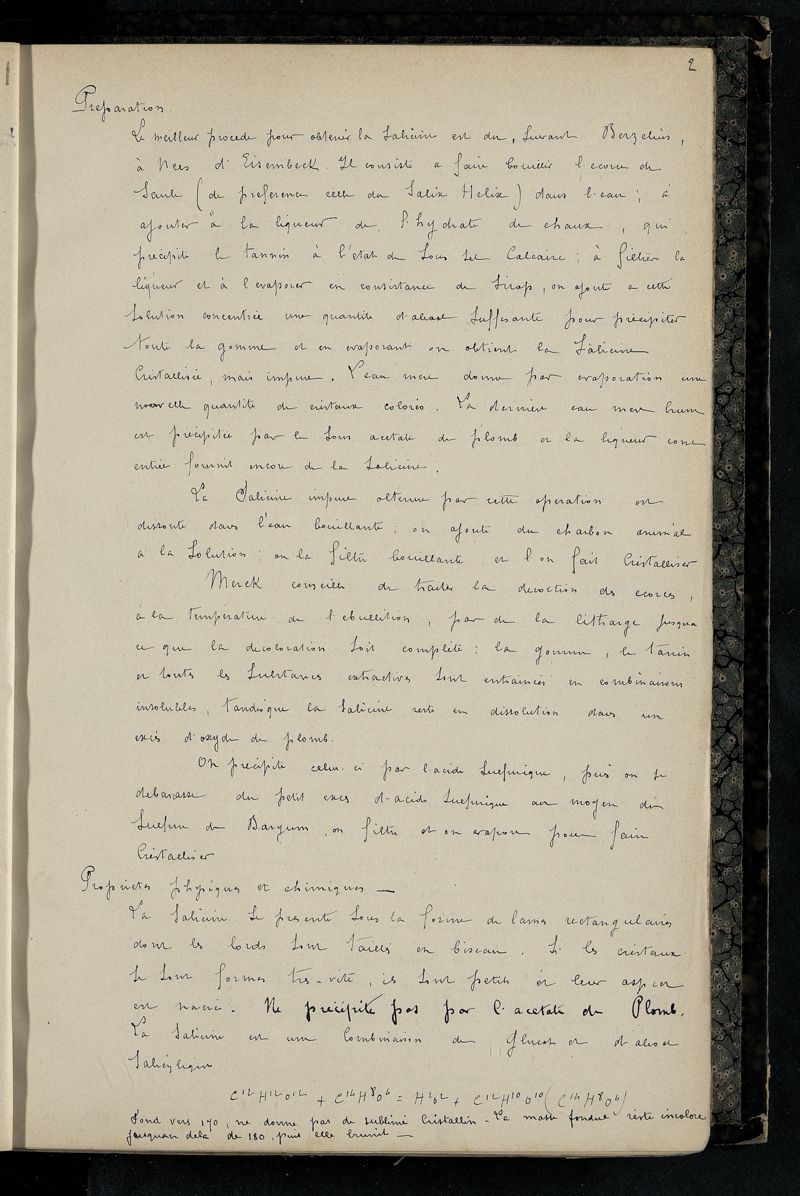 2
Preparation.
Le meilleur procede pour obtenir la Salicine est du, Suivant Berzelius,
à Nees d'Eisembeck. Il consiste a faire bouillir l'ecorce de
Saule (de preference celle du Salix Helix) dans l'eau; à
ajouter à la liqueur de l'hydrate de chaux, qui
précipite le tannin à l'état de Sous Sel Calcaire; à filtrer la
liqueur et à l'evaporer en consistance de Sirop, on ajoute a cette
Solution concentrée une quantité d'alcool Suffisante pour précipiter
toute la gomme et en evaporant on obtient la Salicine
Cristallisée, mais impure. L'eau mere donne par evaporation une
nouvelle quantité de cristaux colorés. La derniere eau mere brune
est précipitée par le Sous acetate de plomb et la liqueur conc
entrée fournit encore de la Salicine.
La Salicine impure obtenue par cette operation est
dissoute dans l'eau bouillante; on ajoute du charbon animal
a la Solution; on la filtre bouillante et l'on fait Cristalliser
Merck conseille de traiter la decoction des ecorces,
à la temperature de l'ebullition, par de la litharge jusqu'a
ce que la decoloration soit complète; la gomme, le tanin
et toutes les Substances extractives Sont entrainées en combinaisons
insolubles, tandisque la Salicine reste en dissolution dans un
excès d'oxyde de plomb.
On precipite celui-ci par l'acide Sulfurique, puis on se
debarrasse du petit exces d'acide Sulfurique au moyen du
Sulfure de Baryum, on filtre et on evapore pour faire
Cristalliser
Propriétés physiques et chimiques —
La Salicine Se presente Sous la forme de lames rectangulaires
dont les bords Sont taillés en biseau. Si les cristaux
Se Sont formés tres-vite, ils Sont petits et leur aspect
est nacré. Ne précipité pas par l'acetate de Plomb.
La Salicine est une Combinaison de Glucose et d'alcool
Salicylique
C¹²H¹²O¹² + C¹⁴H⁸O⁴ = H²O² + C¹²H¹⁰O¹⁰(C¹⁴H⁸O⁴)
Fond vers 170, ne donne pas de sublimé Cristallin - La masse fondue reste incolore
jusquau dela de 180, puis elle brunit —